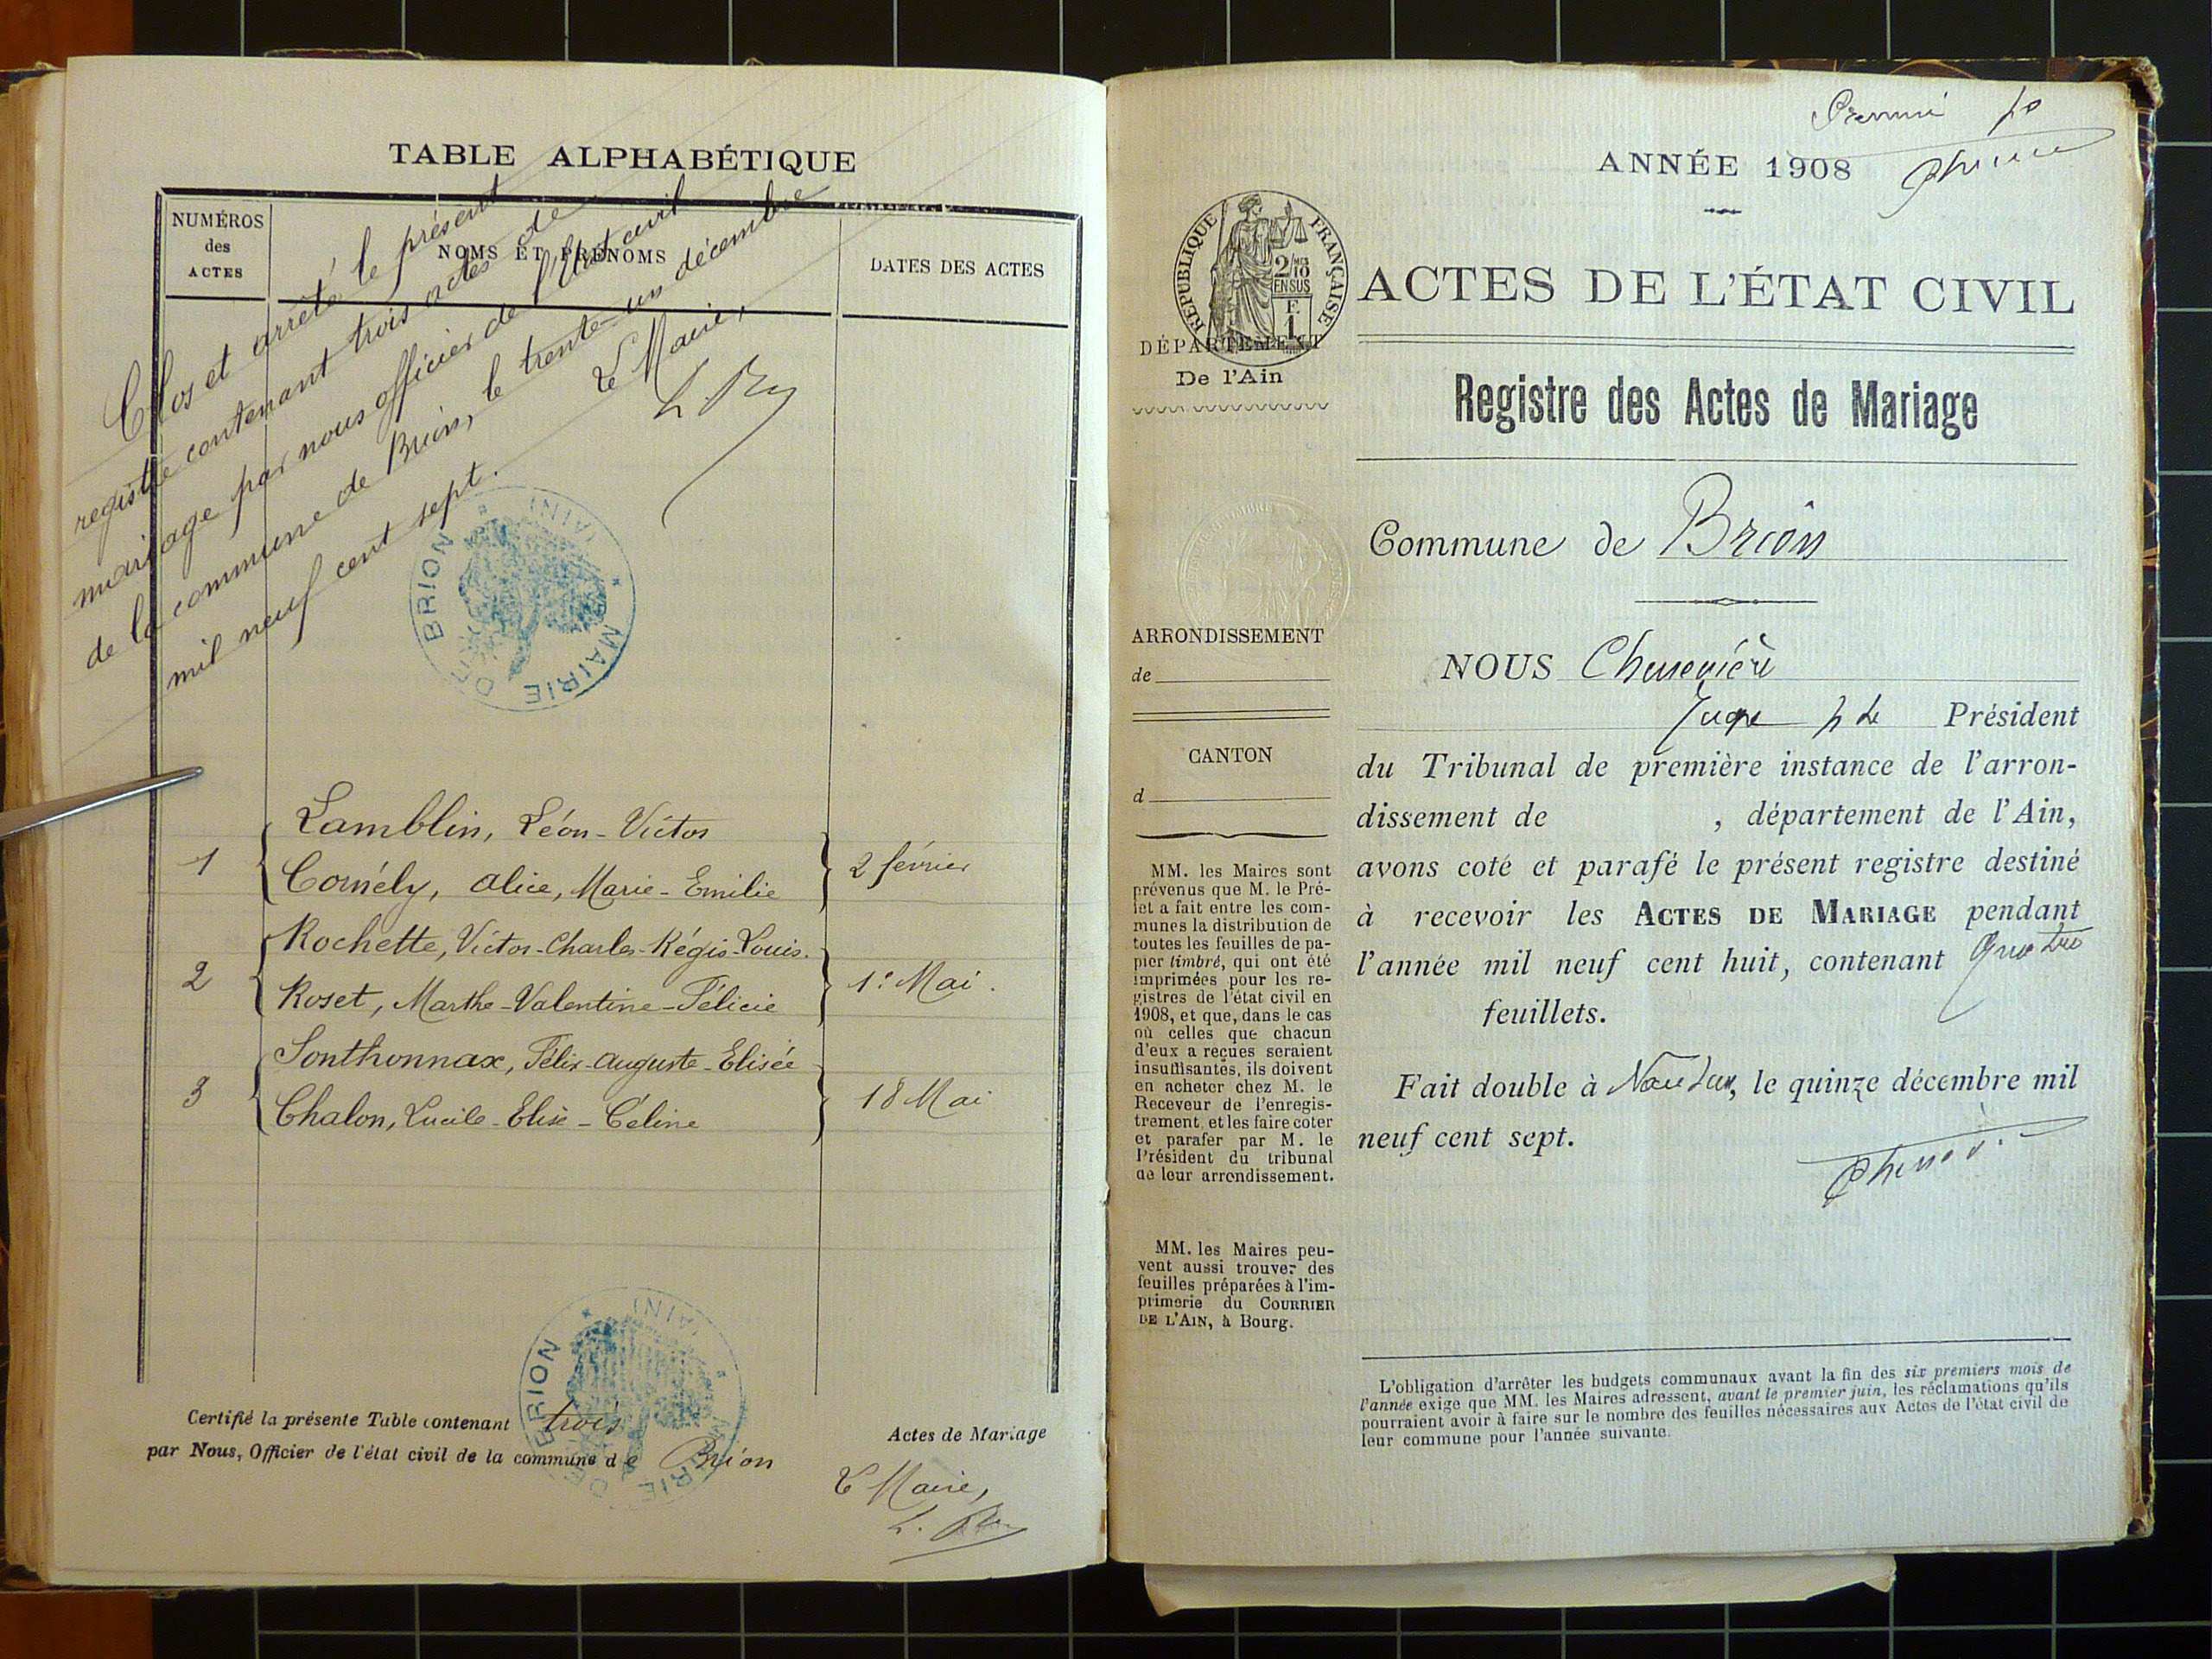 TABLE ALPHABÉTIQUE
NUMÉROS
des
ACTES
NOMS ET PRÉNOMS
DATES DES ACTES
Clos et arrêté le présent
registre contenant trois actes de
mariage par nous officier de l'État civil
de la commune de Brion, le trente-un décembre
mil neuf cent sept.
Le Maire,
MAIRIE DE BRION * (AIN) *
1
Lamblin, Léon-Victor
Cornély, Alice, Marie-Emilie
2 février
2
Rochette, Victor-Charles-Régis-Louis.
Roset, Marthe-Valentine-Félicie
1er Mai.
3
Sonthonnax, Félix-Auguste-Elisée
Chalon, Lucile-Elise-Céline
18 Mai
MAIRIE DE BRION * (AIN) *
Certifié la présente Table contenant trois Actes de Mariage
par Nous, Officier de l'état civil de la commune de Brion
Le Maire,
Premier
ANNÉE 1908
RÉPUBLIQUE FRANÇAISE
2/10
EN SUS
F.
1
ACTES DE L'ÉTAT CIVIL
DÉPARTEMENT
De l'Ain
Registre des Actes de Mariage
Commune de Brion
ARRONDISSEMENT
de
CANTON
d
MM. les Maires sont
prévenus que M. le Pré-
fet a fait entre les com-
munes la distribution de
toutes les feuilles de pa-
pier timbré, qui ont été
imprimées pour les re-
gistres de l'état civil en
1908, et que, dans le cas
où celles que chacun
d'eux a reçues seraient
insuffisantes, ils doivent
en acheter chez M. le
Receveur de l'enregis-
trement, et les faire coter
et parafer par M. le
Président du tribunal
de leur arrondissement.
MM. les Maires peu-
vent aussi trouver des
feuilles préparées à l'im-
primerie du COURRIER
DE L'AIN, à Bourg.
NOUS Chenevière
Juge Président
du Tribunal de première instance de l'arron-
dissement de , département de l'Ain,
avons coté et parafé le présent registre destiné
à recevoir les ACTES DE MARIAGE pendant
l'année mil neuf cent huit, contenant Quatre
feuillets.
Fait double à Nantua, le quinze décembre mil
neuf cent sept.
L'obligation d'arrêter les budgets communaux avant la fin des six premiers mois de
l'année exige que MM. les Maires adressent, avant le premier juin, les réclamations qu'ils
pourraient avoir à faire sur le nombre des feuilles nécessaires aux Actes de l'état civil de
leur commune pour l'année suivante.